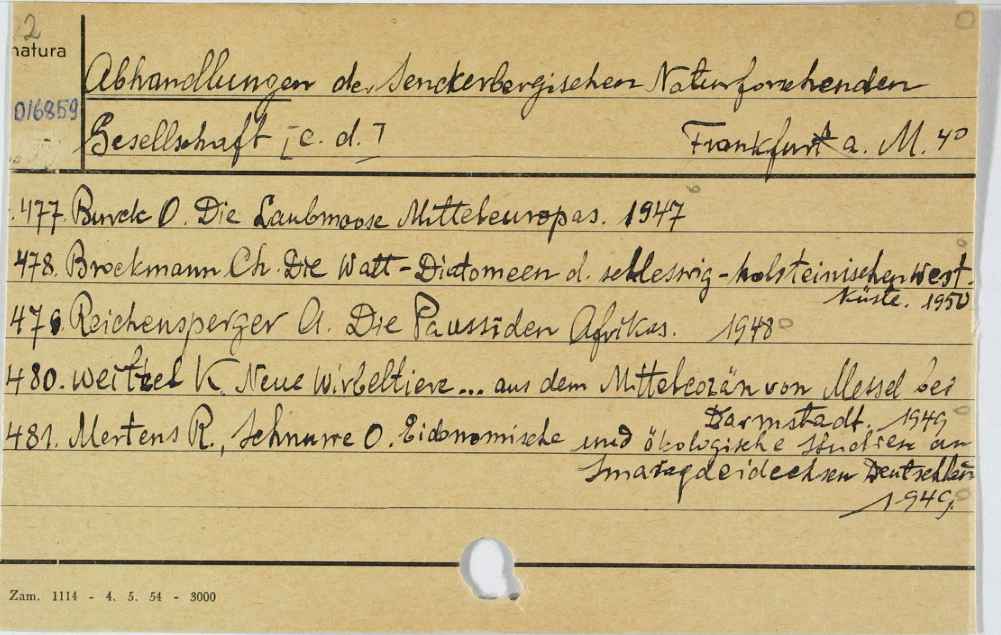 2
natura
Abhandlungen der Senckerbergischen Naturforschenden
016859
Gesellschaft [c. d.] Frankfurt a. M. 4°
477. Burck O. Die Laubmoose Mitteleuropas. 1947
478. Brockmann Ch. Die Watt-Diatomeen d. schleswig-holsteinischen West-
küste. 1950
479. Reichensperger A. Die Paussiden Afrikas. 1948
480. Weitzel K. Neue Wirbeltiere... aus dem Mitteleozän von Messel bei
Darmstadt. 1949
481. Mertens R., Schnurre O. Eidonomische und ökologische Studien an
Smaragdeidechsen Deutschlan
1949.
Zam. 1114 - 4. 5. 54 - 3000